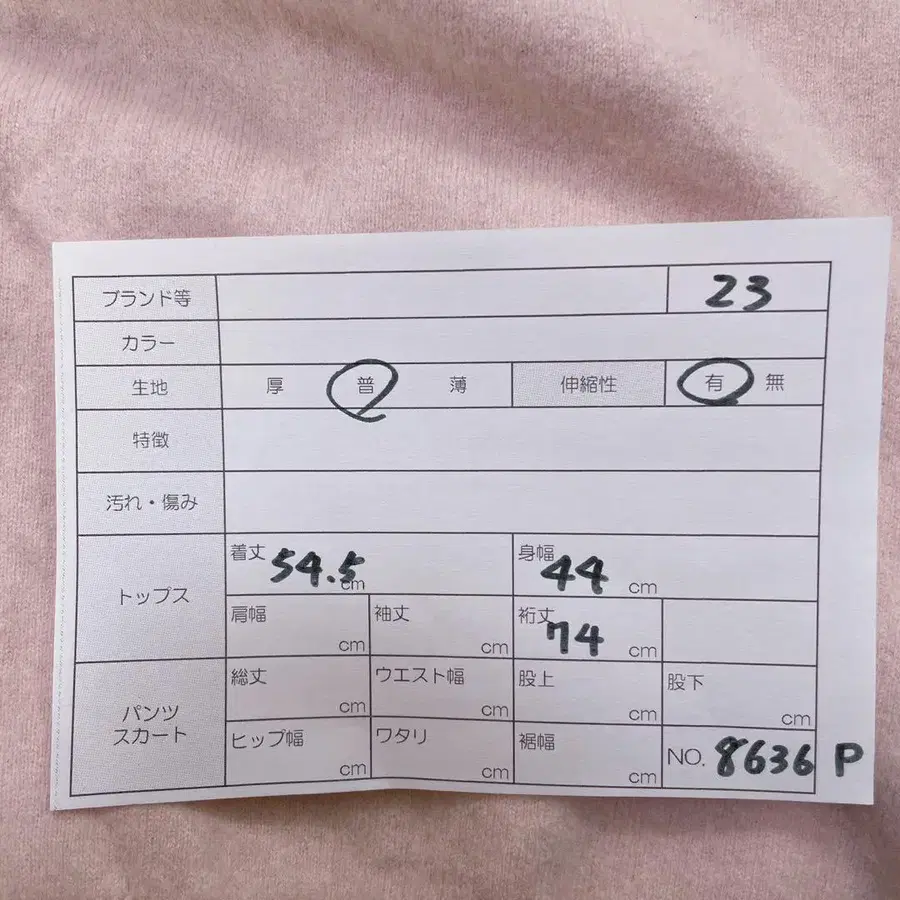 ブランド等 23
カラー
生地 厚 普 薄 伸縮性 有 無
特徴
汚れ・傷み
トップス 着丈 54.5 cm 身幅 44 cm
肩幅 cm 袖丈 cm 裄丈 74 cm
パンツ スカート 総丈 cm ウエスト幅 cm 股上 cm 股下 cm
ヒップ幅 cm ワタリ cm 裾幅 cm NO. 8636 P